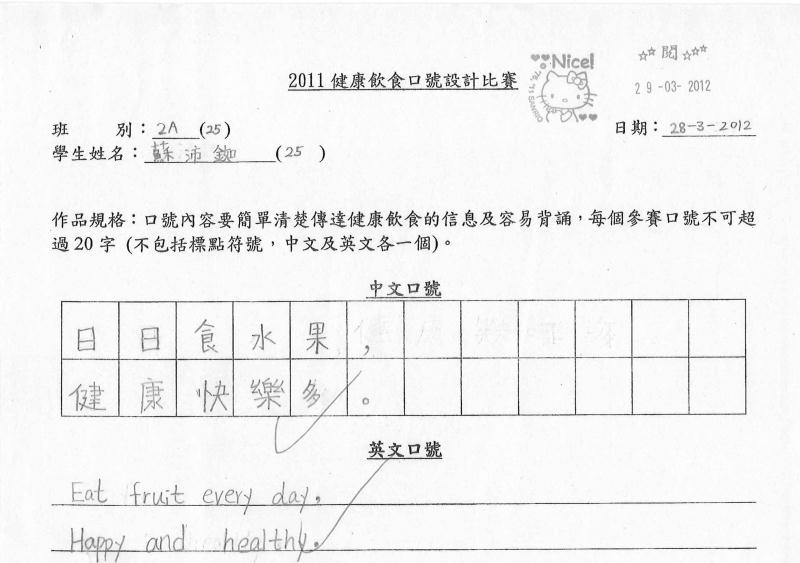 2011 健康飲食口號設計比賽
Nice!
☆☆ 閱 ☆☆☆
29-03-2012
班 別：2A (25)
日期：28-3-2012
學生姓名：蘇沛鉫 (25 )
作品規格：口號內容要簡單清楚傳達健康飲食的信息及容易背誦，每個參賽口號不可超
過 20 字 (不包括標點符號，中文及英文各一個)。
中文口號
日日食水果，
健康快樂多。
英文口號
Eat fruit every day.
Happy and healthy.